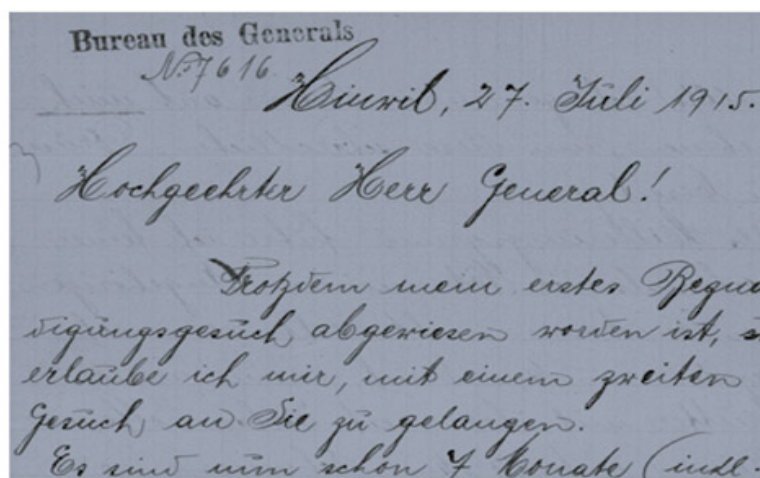 Bureau des Generals
No. 7616
Hinwil, 27. Juli 1915.
Hochgeehrter Herr General!
Trotzdem mein erstes Begna
digungsgesuch abgewiesen worden ist, s
erlaube ich mir, mit einem zweiten
Gesuch an Sie zu gelangen.
Es sind nun schon 7 Monate (inkl.